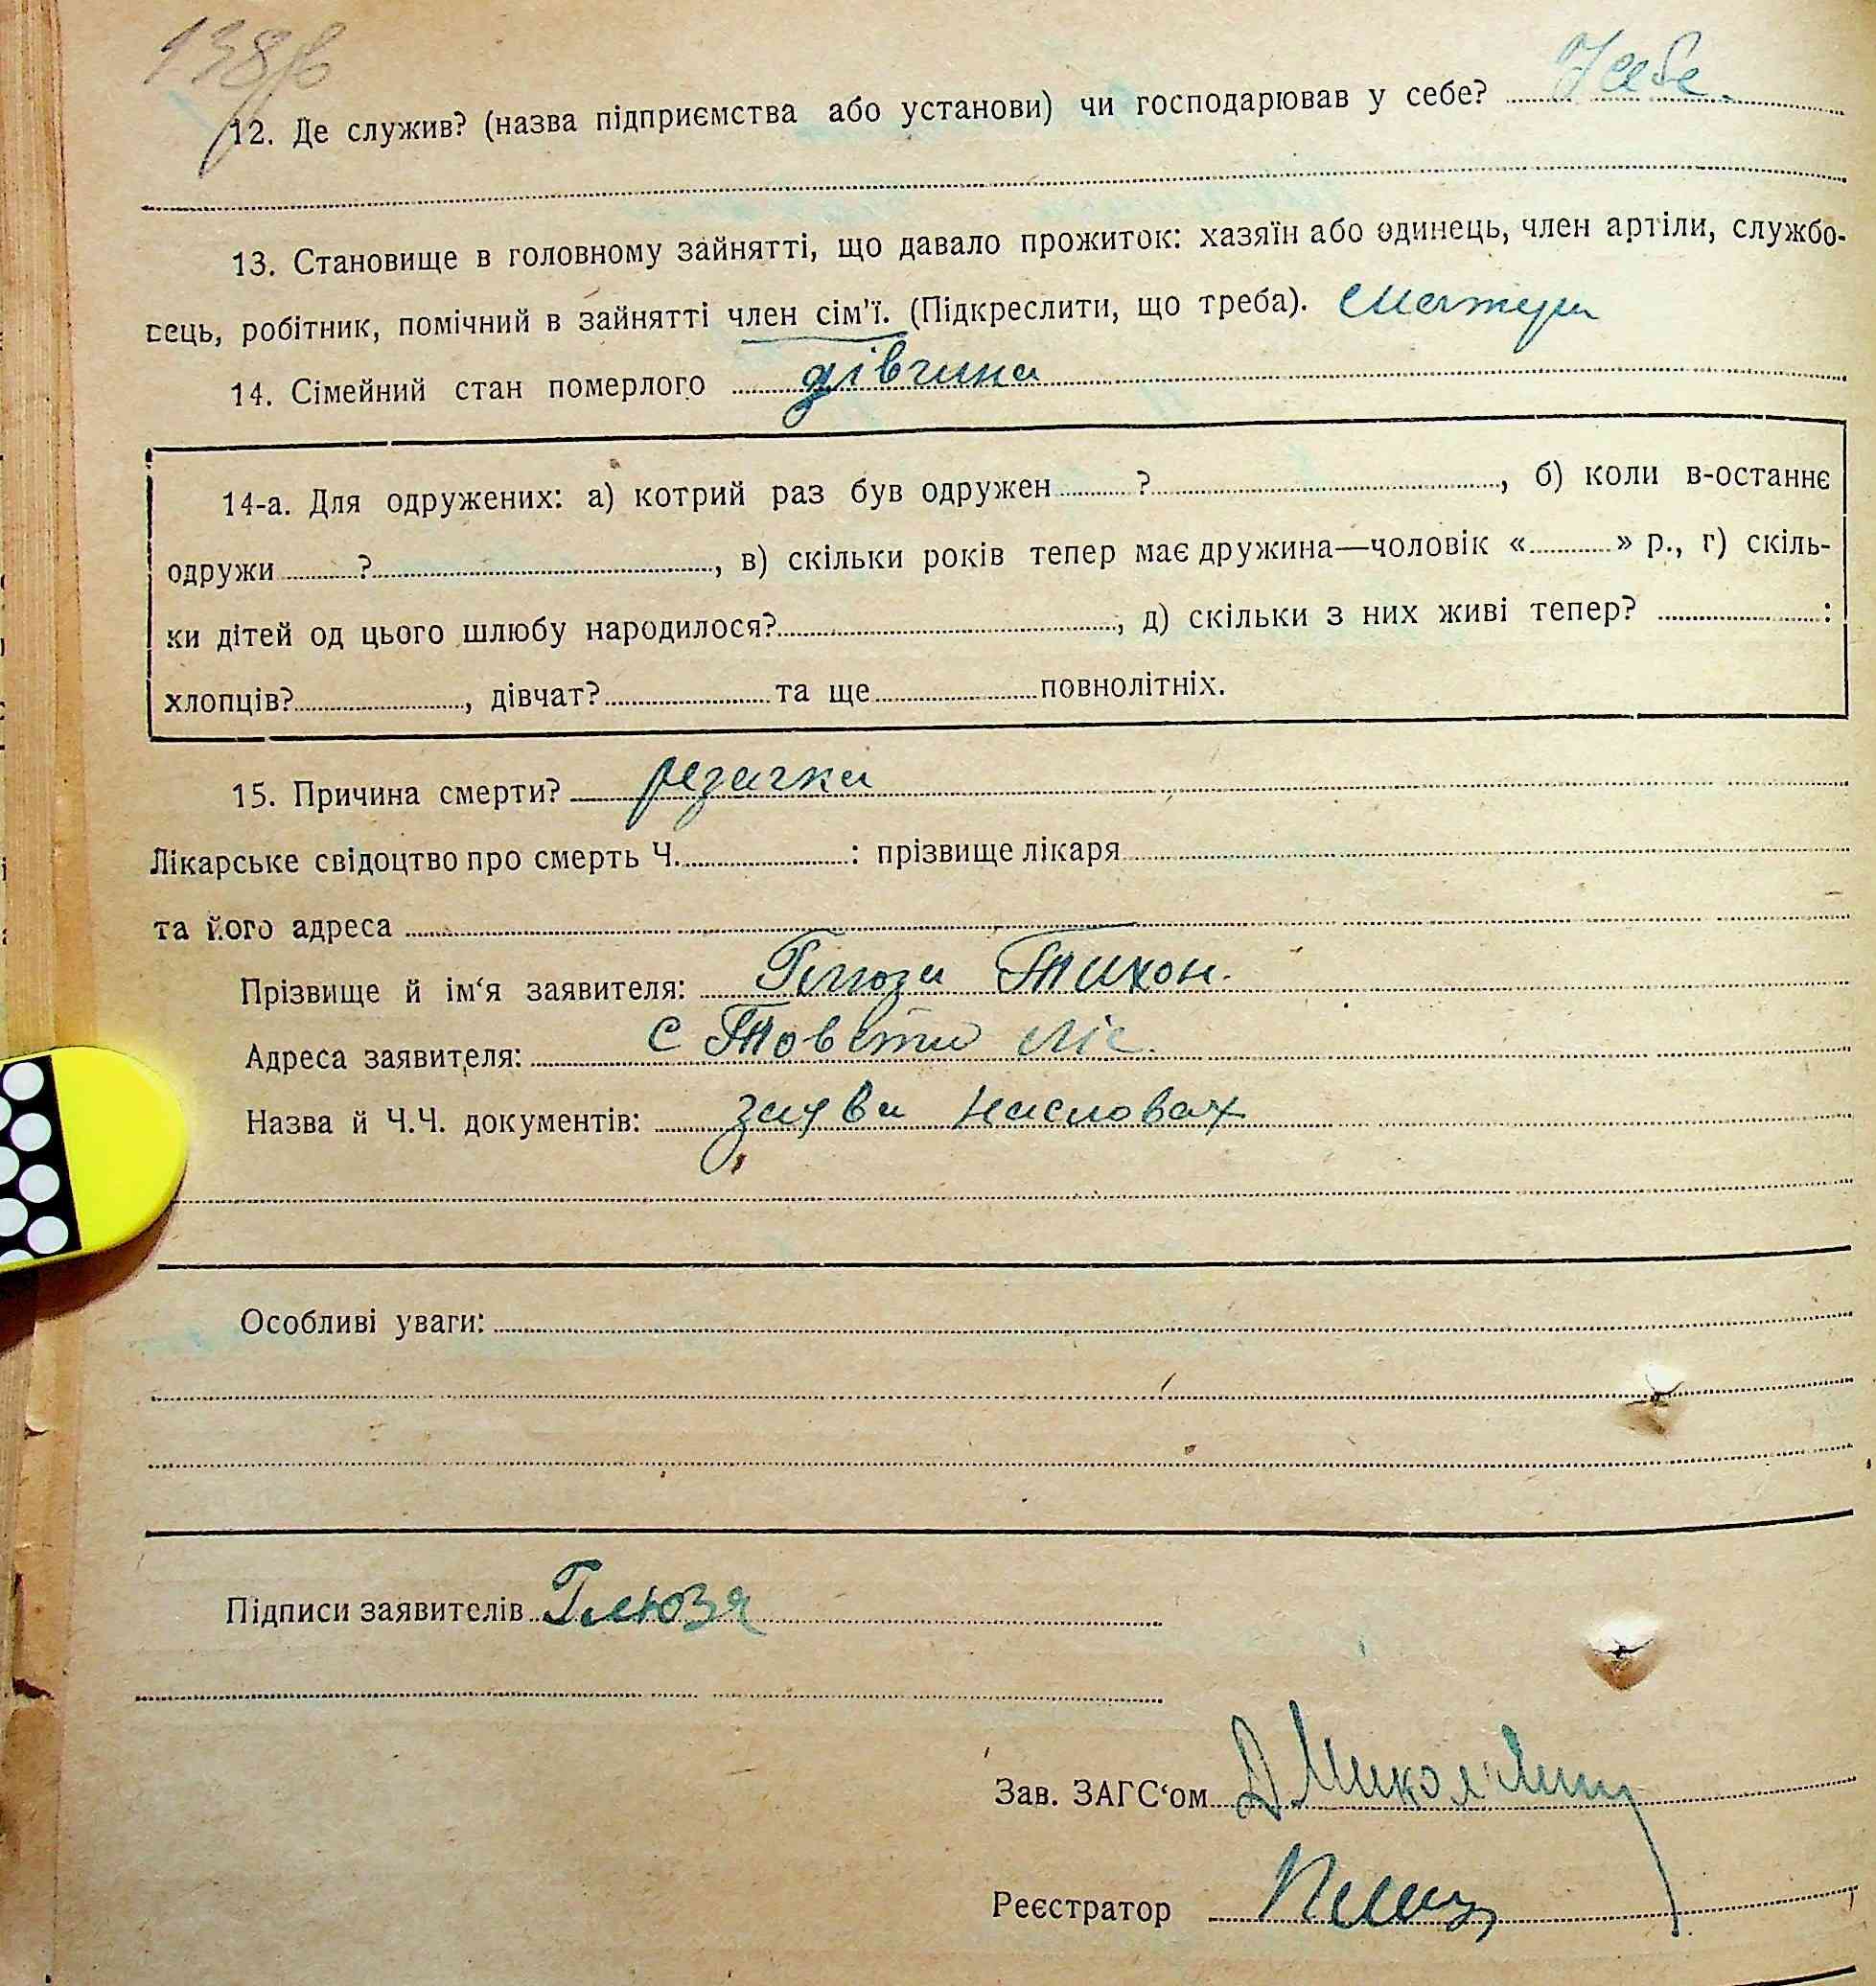 138
12. Де служив? (назва підприємства або установи) чи господарював у себе? У себе.
13. Становище в головному зайнятті, що давало прожиток: хазяїн або одинець, член артіли, службо-
вець, робітник, помічний в зайнятті член сім'ї. (Підкреслити, що треба).
14. Сімейний стан померлого дівчина
14-а. Для одружених: а) котрий раз був одружен ? , б) коли в-останнє
одружи ? , в) скільки років тепер має дружина—чоловік « » р., г) скіль-
ки дітей од цього шлюбу народилося? , д) скільки з них живі тепер? :
хлопців? , дівчат? та ще повнолітніх.
15. Причина смерти? резачка
Лікарське свідоцтво про смерть Ч. : прізвище лікаря
та його адреса
Прізвище й ім‘я заявителя: Глюза Тихон.
Адреса заявителя: с Товстий Ліс.
Назва й Ч.Ч. документів: заява
Особливі уваги:
Підписи заявителів Глюзя
Зав. ЗАГС‘ом
Реєстратор